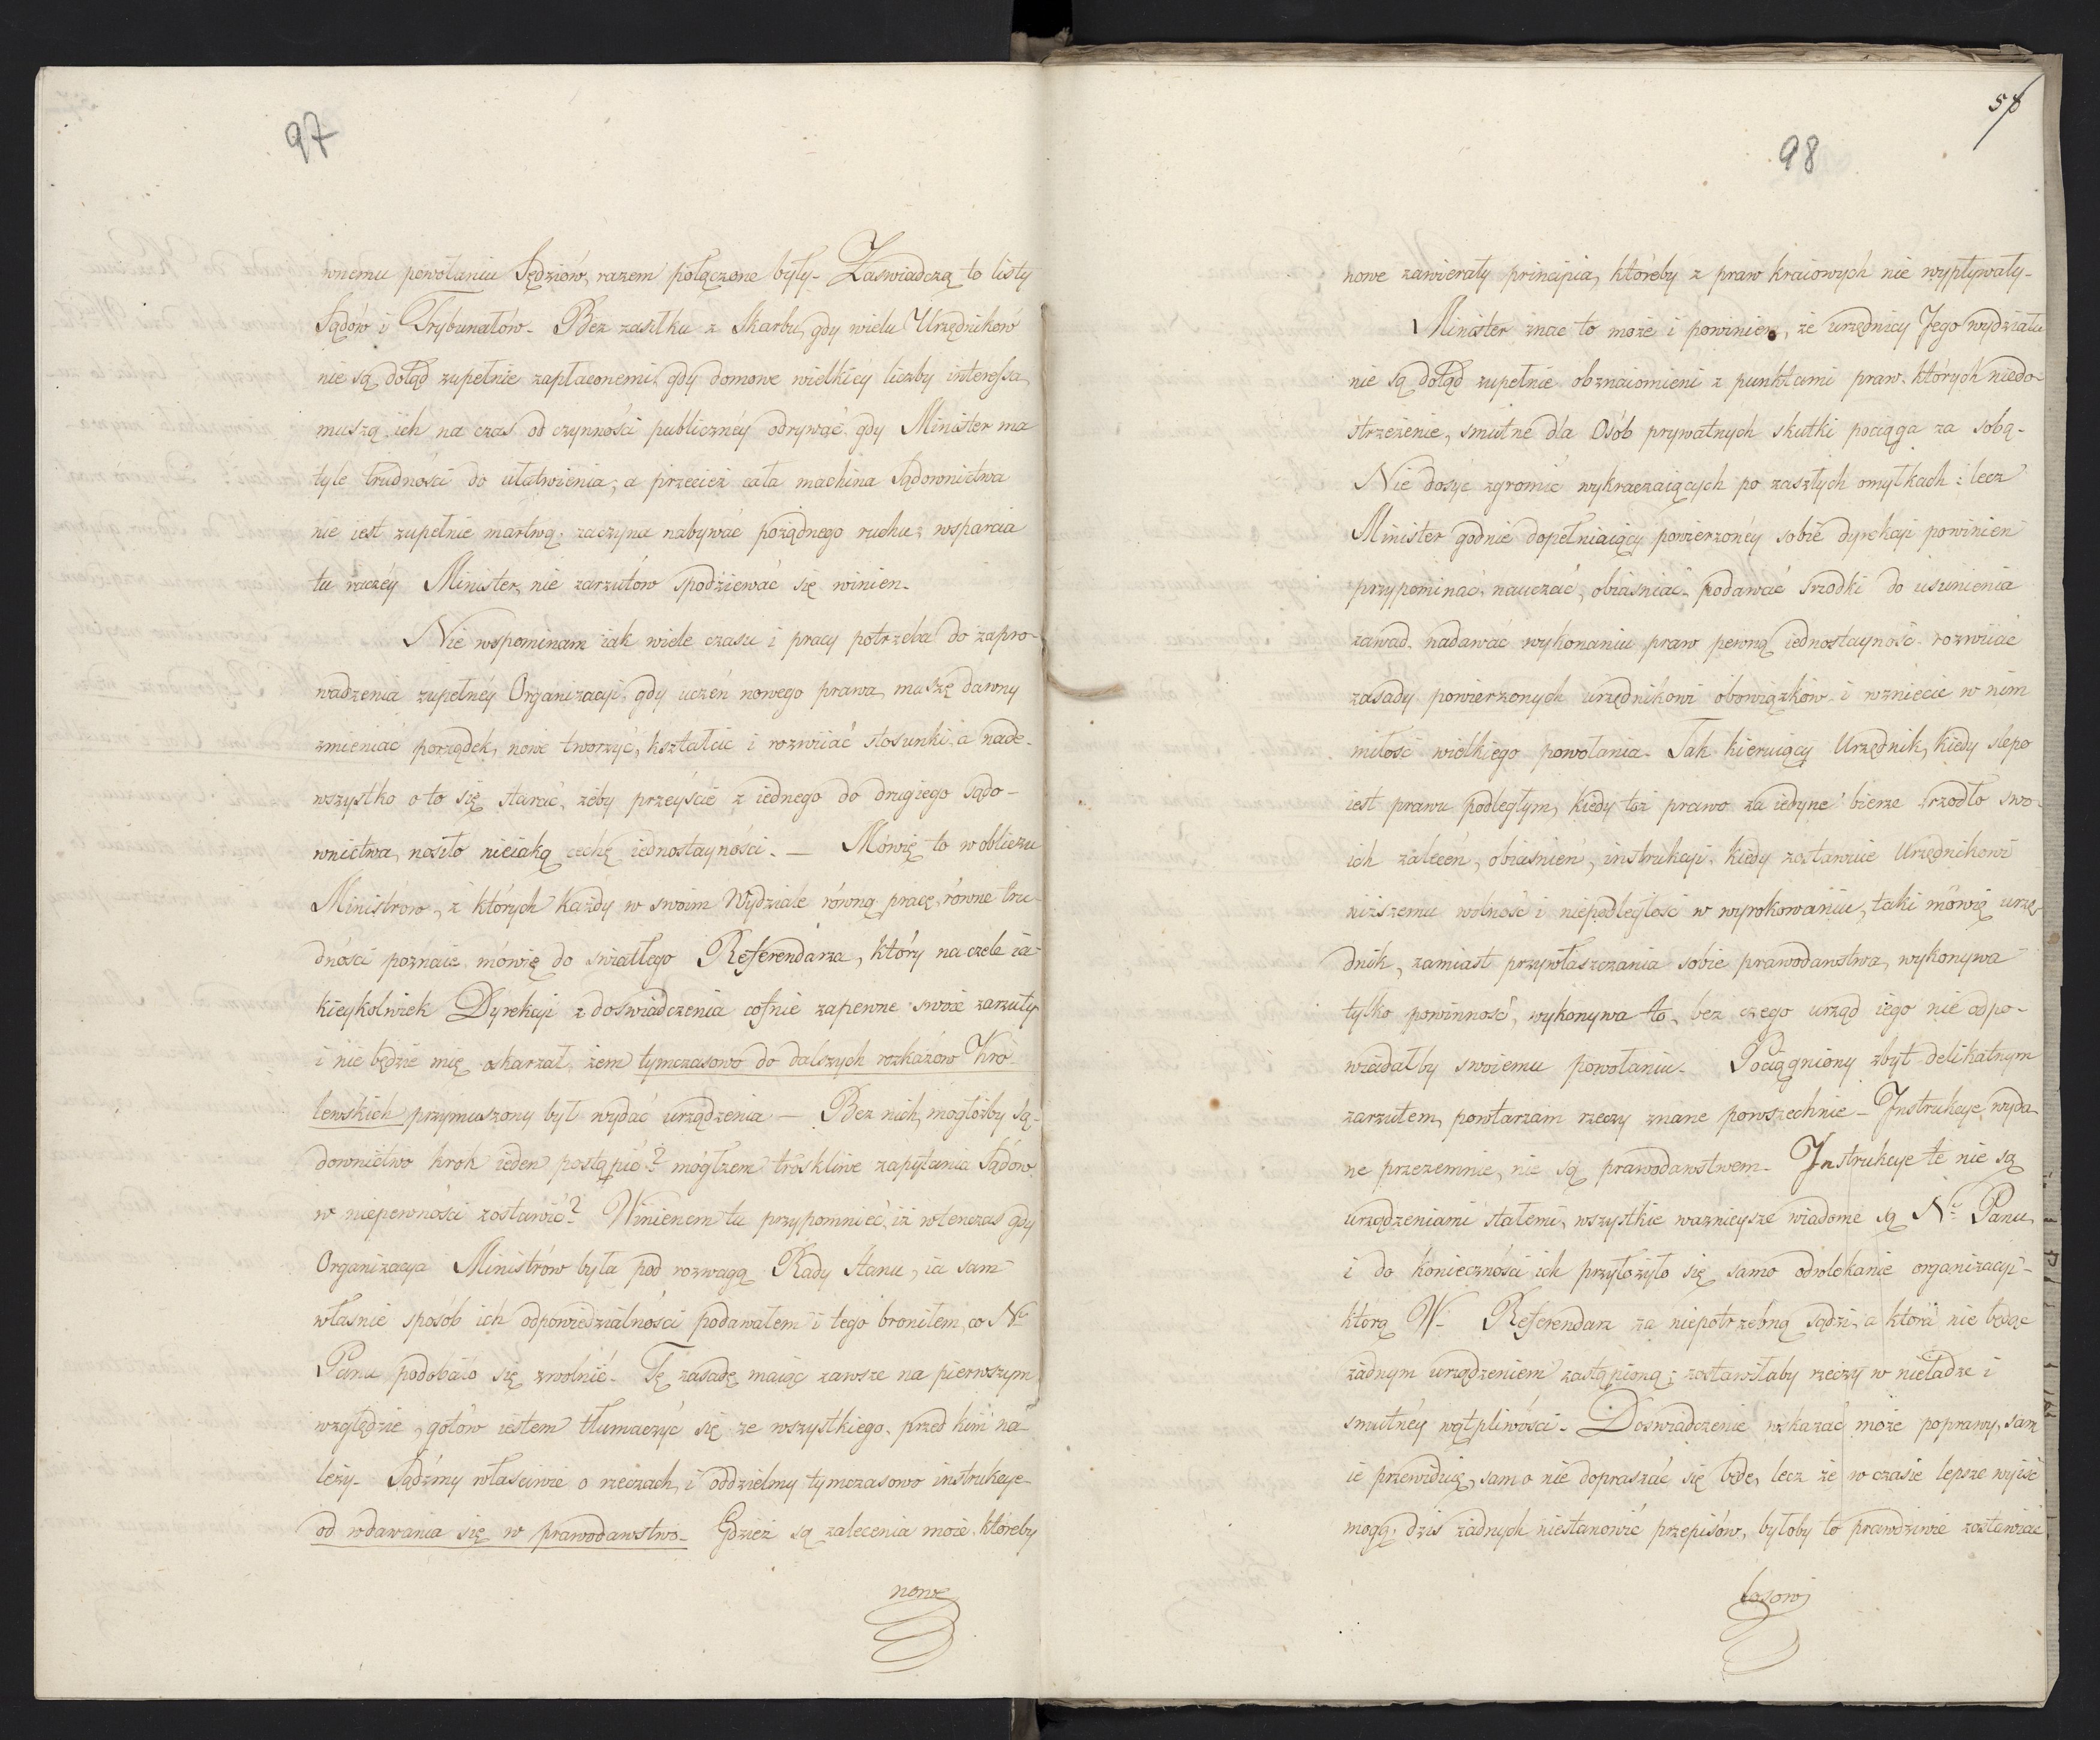 97
wnemu powołaniu Sędziów, razem połączone były. Zaswiadczą to listy
Sądów i Trybunałów. Bez zasiłku z Skarbu, gdy wielu Urzędników
nie są dotąd zupełnie zapłaconemi, gdy domowe wielkiey liczby interessa,
muszą ich na czas od czynności publiczney odrywać, gdy Minister ma
tyle trudności do ułatwienia; a przecież cała machina Sądownictwa
nie iest zupełnie martwą, zaczyna nabywać pożądnego ruchu; wsparcia
tu raczey Minister, nie zarzutów spodziewać się winien.
Nie wspominam iak wiele czasu i pracy potrzeba do zapro-
wadzenia zupełney Organizacyi, gdy uczeń nowego prawa, muszę dawny
zmieniać porządek, nowe tworzyć, kształcić i rozwiiać stosunki, a nade-
wszystko o to się starać, żeby przeyście z iednego do drugiego Sądo-
wnictwa, nosiło nieiaką cechę iednostayności. — Mówię to w obliczu
Ministrów, z których każdy w swoim Wydziale równą pracę, równe tru-
dności poznaie, mówię do swiatłego Referendarza, który na czele ia-
kieykolwiek Dyrekcyi z doswiadczenia cofnie zapewne swoie zarzuty
i nie będzie mię oskarżał, żem tymczasowo do dalszych rozkazów Kró-
lewskich przymuszony był wydać urządzenia — Bez nich, mogłożby Są-
downictwo krok ieden postąpić? mógłżem troskliwe zapytania Sądów
w niepewności zostawić? Winienem tu przypomnieć, iż wtenczas gdy
Organizacya Ministrów była pod rozwagą Rady Stanu, ia sam
własnie sposób ich odpowiedzialności podawałem i tego broniłem, co Nu
Panu podobało się zwolnić. Tę zasadę maiąc zawsze na pierwszym
względzie, gotów iestem tłumaczyć się ze wszystkiego, przed kim na-
leży. Sądźmy własciwie o rzeczach, i oddzielmy tymczasowo instrukcye
od wdawania się w prawodawstwo. Gdzież są zalecenia moie, któreby
nowe
58
98
nowe zawierały principia, któreby z praw kraiowych nie wypływały.
Minister znać to może i powinien, że urzędnicy Jego wydziału
nie są dotąd zupełnie obznaiomieni z punktami praw, których niedo-
strzeżenie, smutne dla Osób prywatnych skutki pociąga za sobą.
Nie dosyć zgromić wykraczaiących po zaszłych omyłkach; lecz
Minister godnie dopełniaiący powierzoney sobie dyrekcyi powinien
przypominać, nauczać, obiasniać, podawać srzodki do usunienia
zawad, nadawać wykonaniu praw pewną iednostayność, rozwiiać
zasady powierzonych urzędnikowi obowiązków i wzniecić w nim
miłość wielkiego powołania. Tak kieruiący Urzędnik, kiedy slepo
iest prawu podległym, kiedy toż prawo za iedyne bierze zrzodło swo-
ich zaleceń, obiasnień, instrukcyi, kiedy zostawuie Urzędnikowi
niższemu wolność i niepodległość w wyrokowaniu, taki mówię urzę-
dnik, zamiast przywłaszczania sobie prawodawstwa, wykonywa
tylko powinność, wykonywa to, bez czego urząd iego nie odpo-
wiadałby swoiemu powołaniu. Pociągniony zbyt delikatnym
zarzutem, powtarzam rzeczy znane powszechnie. Instrukcye wyda-
ne przezemnie, nie są prawodawstwem. Instrukcye te nie są
urządzeniami stałemi, wszystkie waznieysze wiadome są Nu Panu,
i do konieczności ich przyłożyło się samo odwlekanie organizacyi
którą W. Referendarz za niepotrzebną sądzi, a która nie będąc
żadnym urządzeniem zastąpioną; zostawiłaby rzeczy w nieładzie i
smutney wątpliwości. Doswiadczenie wskazać może poprawy, sam
ie przewiduię, sam o nie dopraszać się będę, lecz że w czasie lepsze wyiść
mogą, dzis żadnych niestanowić przepisów, byłoby to prawdziwie zostawiać
losowi